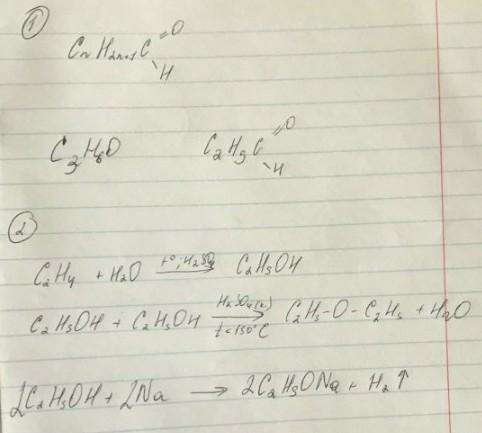 ①
CnH2n+1C=O
-H
C3H6O C2H5C=O
-H
②
C2H4 + H2O t°;H2SO4→ C2H5OH
C2H5OH + C2H5OH H2SO4(к) t<150°C → C2H5-O-C2H5 + H2O
2C2H5OH + 2Na → 2C2H5ONa + H2↑